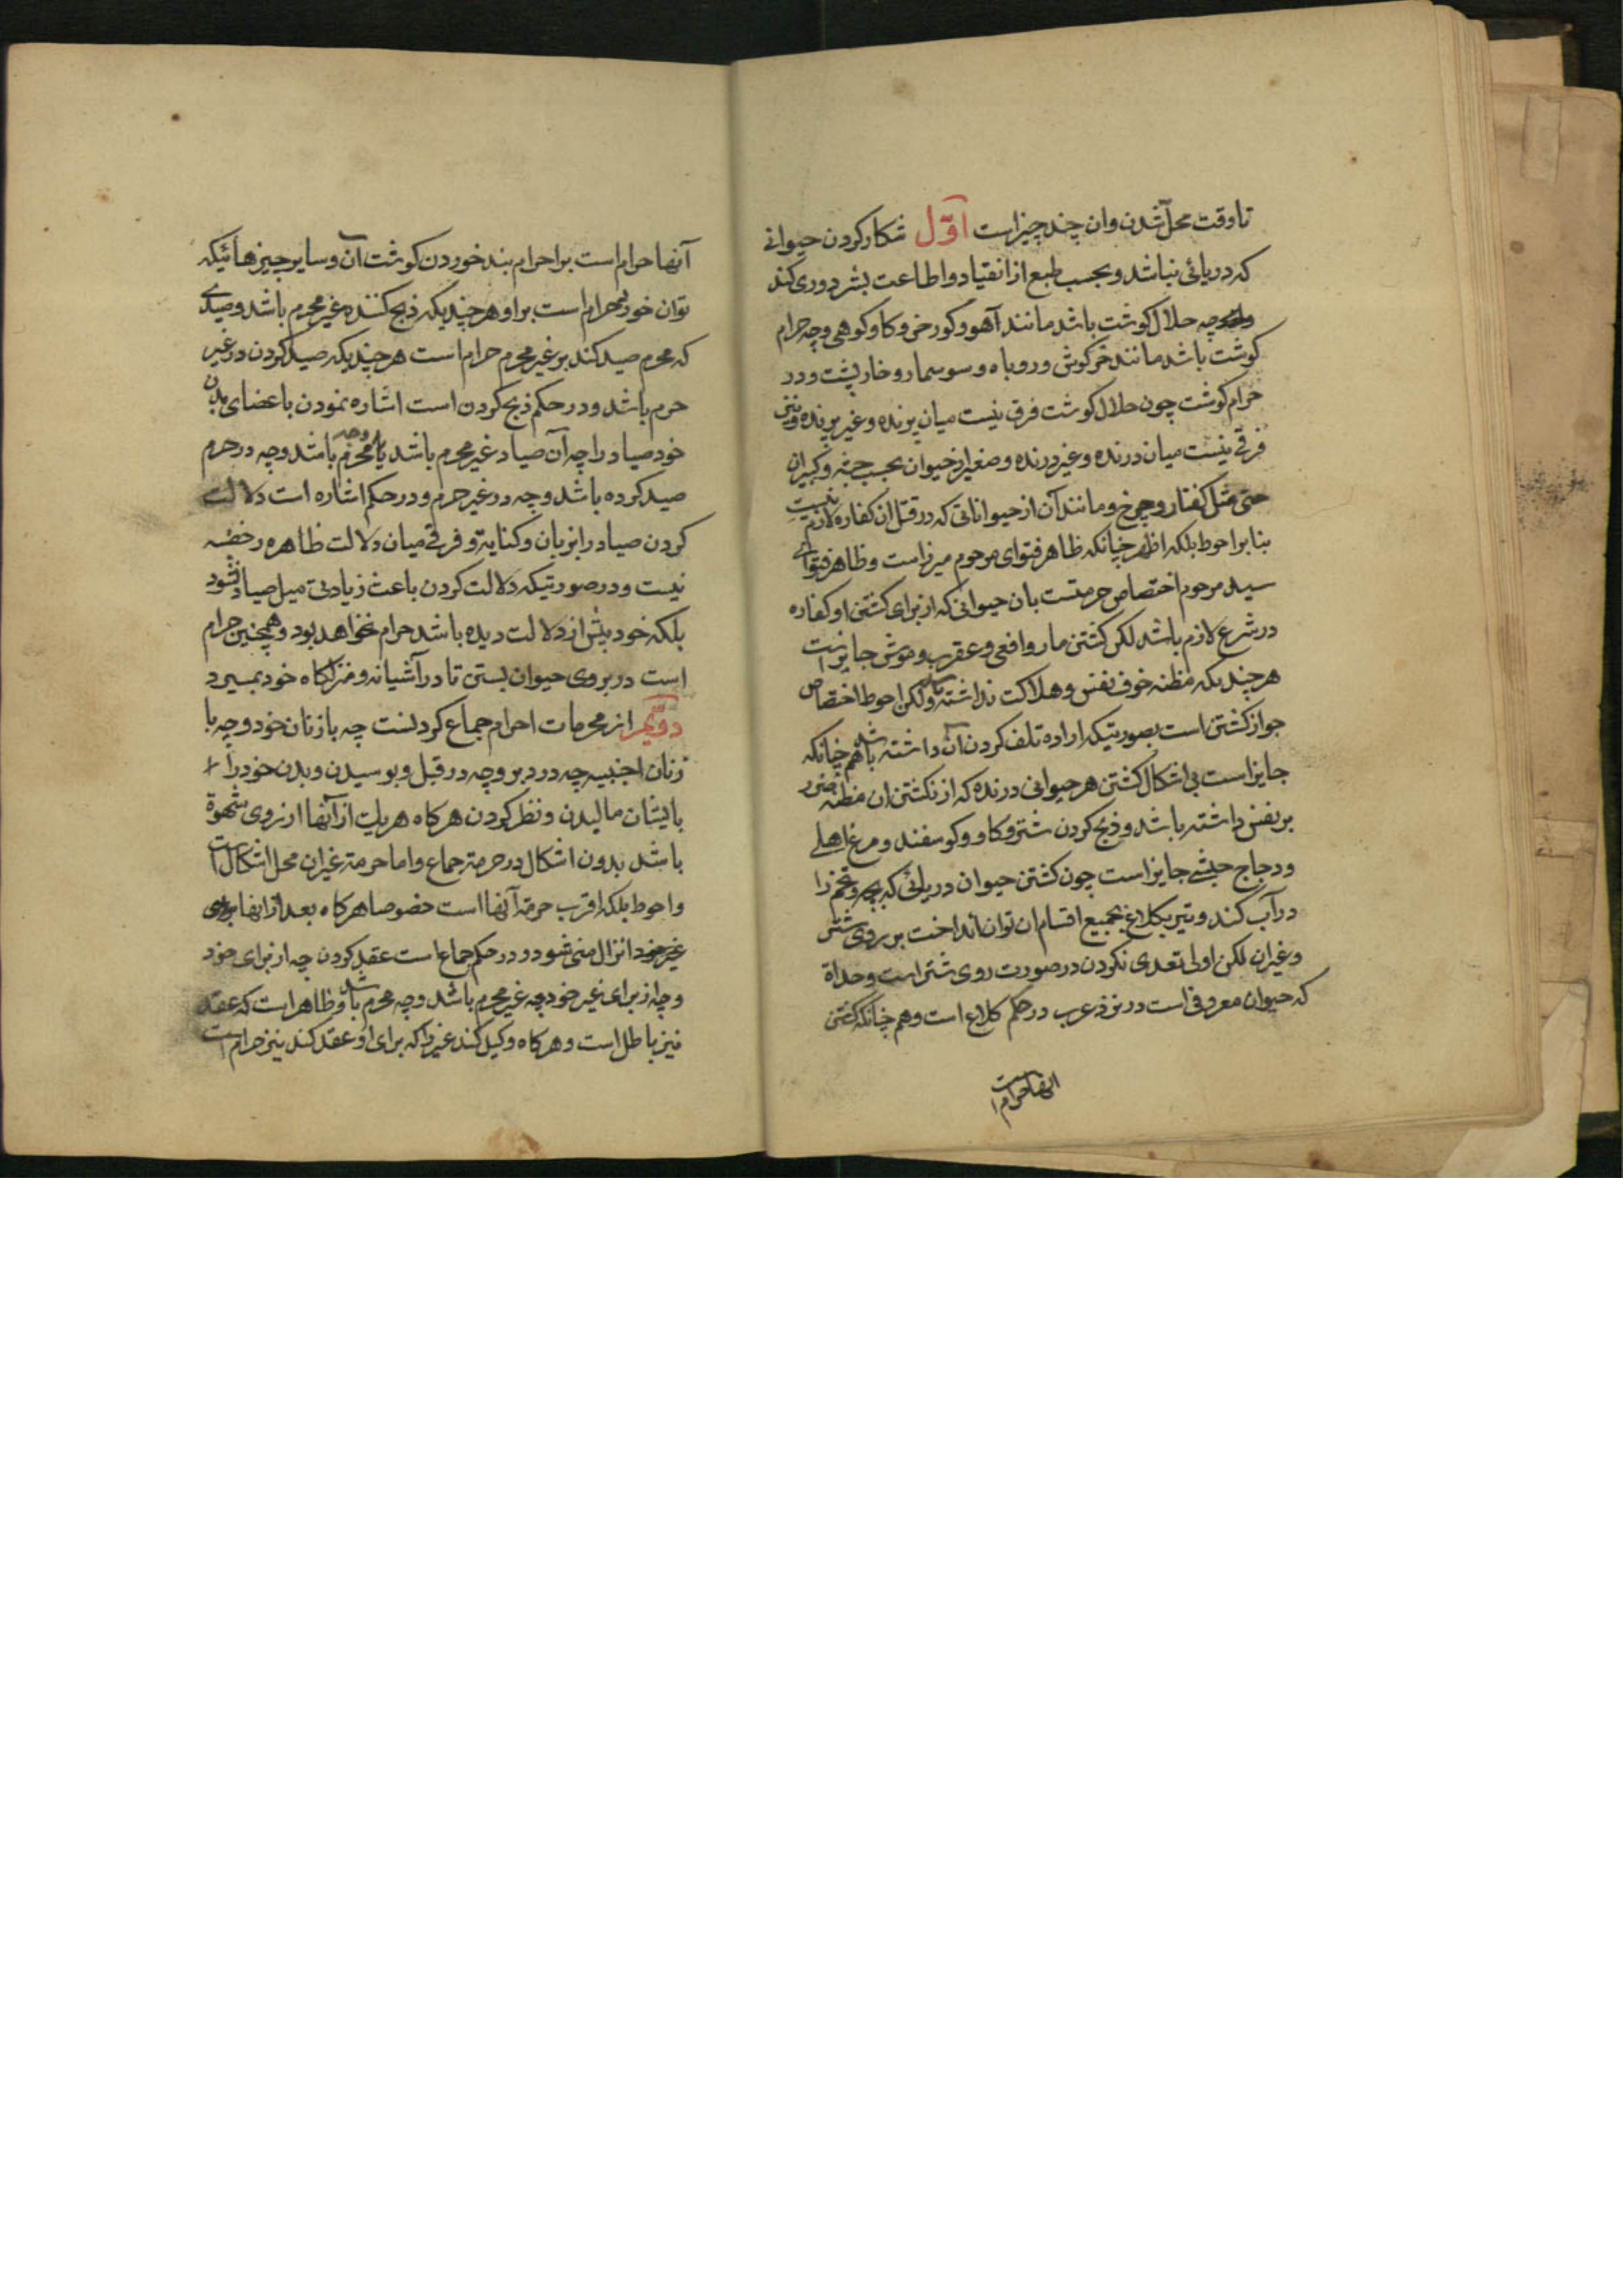 تا وقت محل شدن وان چند چیز است اوّل شکار کردن حیوانی
که دریائی نباشد و بحسب طبع از انقیاد و اطاعت بشر دوری کند
چه حلال کوشت باشد مانند آهو و کورخر و کاو کوهی و چه حرام
کوشت باشد مانند خرکوش و روباه و سوسمار و خارپشت و در
حرام کوشت چون حلال کوشت فرق نیست میان پرنده و غیر پرنده و نیز
فرقی نیست میان درنده و غیر درنده و صغیر از حیوان بحسب جثه و کبیر ان
حتی مثل کفتار و چرخ و مانند آن از حیواناتی که در قتل ان کفاره لازم نیست
بنا بر احوط بلکه اظهر چنانکه ظاهر فتوای مرحوم میرزاست و ظاهر فتوای
سید مرحوم اختصاص حرمتست بان حیوانی که از برای کشتن او کفاره
در شرع لازم باشد لکن کشتن مار و افعی و عقرب و موش جایز است
هرچند که مظنه خوف نفس و هلاکت نداشته باشد ولکن احوط اختصاص
جواز کشتن است بصورتیکه اراده تلف کردن آن داشته باشد هم چنانکه
جایز است بی اشکال کشتن هر حیوانی درنده که از نکشتن ان مظنه ضرر
بر نفس داشته باشد و ذبح کردن شتر و کاو و کوسفند و مرغ اهلی
و دجاج حبشی جایز است چون کشتن حیوان دریائی که بچه و تخم را
در آب کند و تیر بکلاغ بجمیع اقسام ان توان انداخت بر روی شتر
و غیر ان لکن اولی تعدی نکردن در صورت روی شتر است و حداة
که حیوان معروفی است در نزد عرب در حکم کلاغ است و هم چنانکه کشتن
انها حرام است
آنها حرام است بر احرام بند خوردن کوشت آن و سایر چیزهائیکه
توان خورد حرام است بر او هرچند که ذبح کننده غیر محرم باشد و صیدی
که محرم صید کند بر غیر محرم حرام است هرچند که صید کردن در غیر
حرم باشد و در حکم ذبح کردن است اشاره نمودن باعضای بدن
خود صیاد را چه آن صیاد غیر محرم باشد یا محرم باشد و چه در حرم
صید کرده باشد و چه در غیر حرم و در حکم اشاره است دلالت
کردن صیاد را بزبان و کنایة و فرقی میان دلالت ظاهره و خفیه
نیست و در صورتیکه دلالت کردن باعث زیادتی میل صیاد نشود
بلکه خود پیش از دلالت دیده باشد حرام نخواهد بود و همچنین حرام
است در بروی حیوان بستن تا در آشیانه و منزلکاه خود بمیرد
دویّم از محرمات احرام جماع کردنست چه با زنان خود و چه با
زنان اجنبیه چه در دبر و چه در قبل و بوسیدن و بدن خود را
بایشان مالیدن و نظر کردن هرکاه هر یک از آنها از روی شهوة
باشد بدون اشکال در حرمة جماع و اما حرمة غیر ان محل اشکال است
و احوط بلکه اقرب حرمة آنها است خصوصا هرکاه بعد از انها
انزال منی شود و در حکم جماع است عقد کردن چه از برای خود
و چه از برای غیر خود چه غیر محرم باشد و چه محرم باشد و ظاهر است که عقد
نیز باطل است و هرکاه وکیل کند غیر را که برای او عقد کند نیز حرام است